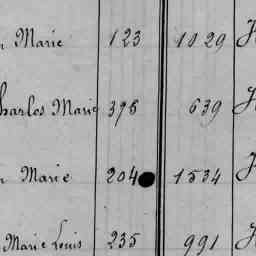 n Marie 123 1029 H
harles Marie 396 639 H
n Marie 204 1534 H
Marie Louis 235 991 H